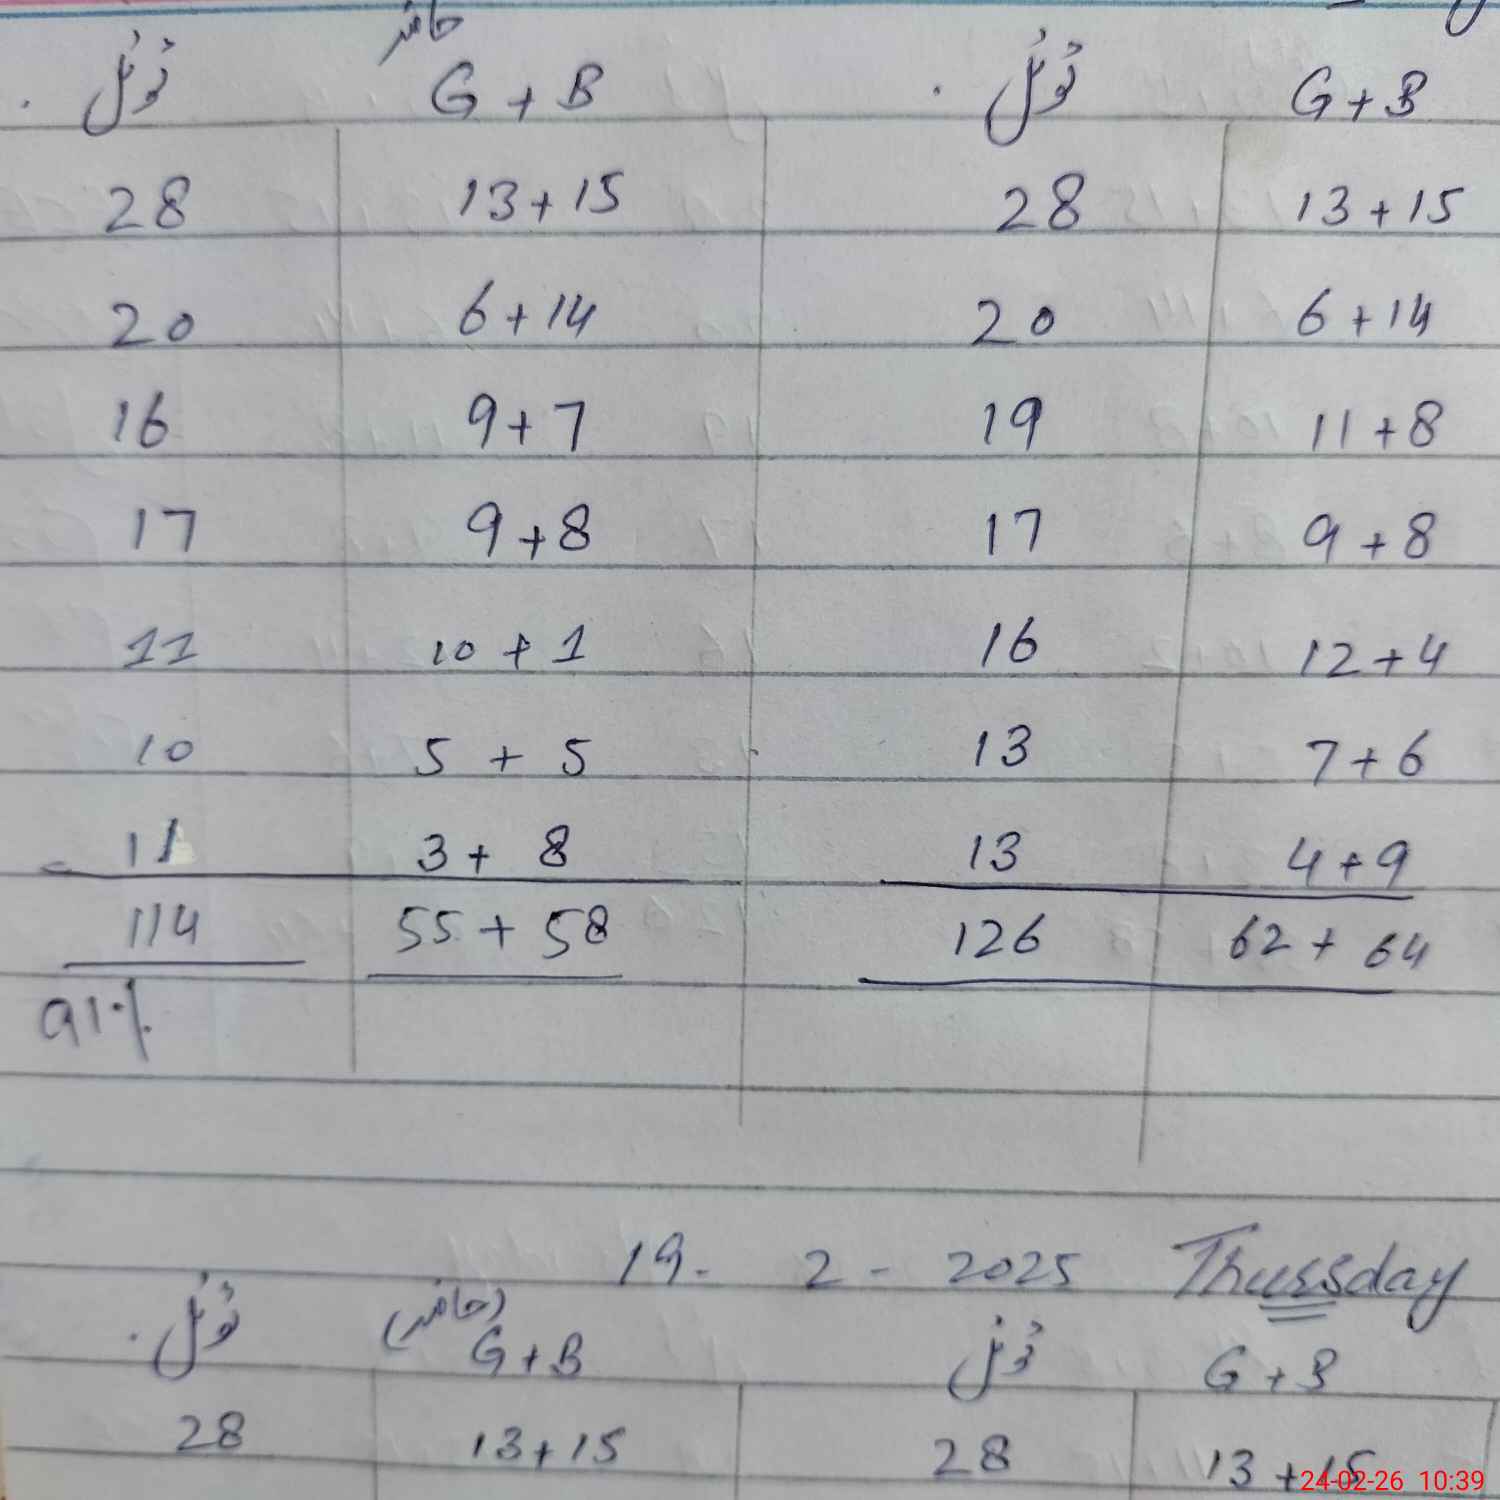 حاضر
ٹوٹل G + B ٹوٹل G + B
28 13 + 15 28 13 + 15
20 6 + 14 20 6 + 14
16 9 + 7 19 11 + 8
17 9 + 8 17 9 + 8
11 10 + 1 16 12 + 4
10 5 + 5 13 7 + 6
11 3 + 8 13 4 + 9
114 55 + 58 126 62 + 64
91%
19 - 2 - 2025 Thursday
(حاضر)
ٹوٹل G + B ٹوٹل G + B
28 13 + 15 28 13 + 15
24-02-26 10:39